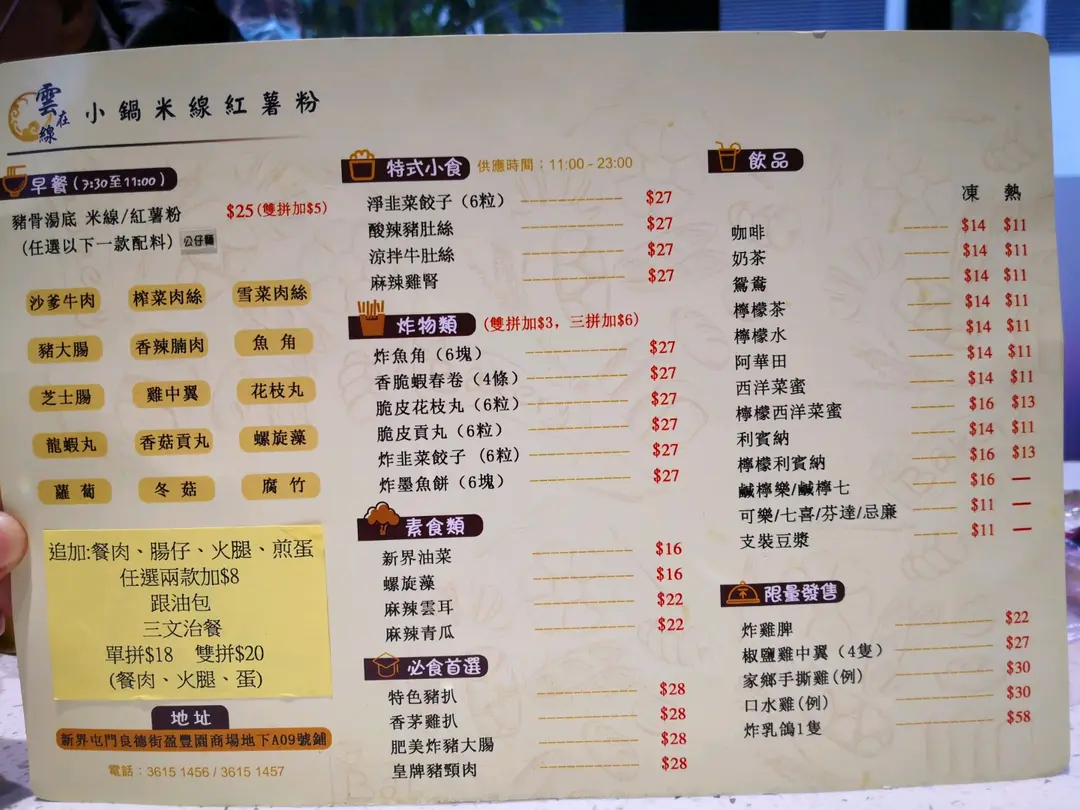 雲在線 小鍋米線紅薯粉
早餐(7:30至11:00)
豬骨湯底 米線/紅薯粉 $25(雙拼加$5)
(任選以下一款配料) 公仔麵
沙爹牛肉 榨菜肉絲 雪菜肉絲
豬大腸 香辣腩肉 魚角
芝士腸 雞中翼 花枝丸
龍蝦丸 香菇貢丸 螺旋藻
蘿蔔 冬菇 腐竹
追加:餐肉、腸仔、火腿、煎蛋
任選兩款加$8
跟油包
三文治餐
單拼$18 雙拼$20
(餐肉、火腿、蛋)
地址
新界屯門良德街盈豐園商場地下A09號鋪
電話：3615 1456 / 3615 1457
特式小食 供應時間：11:00 - 23:00
淨韭菜餃子（6粒） $27
酸辣豬肚絲 $27
涼拌牛肚絲 $27
麻辣雞腎 $27
炸物類 (雙拼加$3，三拼加$6)
炸魚角（6塊） $27
香脆蝦春卷（4條） $27
脆皮花枝丸（6粒） $27
脆皮貢丸（6粒） $27
炸韭菜餃子（6粒） $27
炸墨魚餅（6塊） $27
素食類
新界油菜 $16
螺旋藻 $16
麻辣雲耳 $22
麻辣青瓜 $22
必食首選
特色豬扒 $28
香茅雞扒 $28
肥美炸豬大腸 $28
皇牌豬頸肉 $28
飲品
凍 熱
咖啡 $14 $11
奶茶 $14 $11
鴛鴦 $14 $11
檸檬茶 $14 $11
檸檬水 $14 $11
阿華田 $14 $11
西洋菜蜜 $14 $11
檸檬西洋菜蜜 $16 $13
利賓納 $14 $11
檸檬利賓納 $16 $13
鹹檸樂/鹹檸七 $16 —
可樂/七喜/芬達/忌廉 $11 —
支裝豆漿 $11 —
限量發售
炸雞脾 $22
椒鹽雞中翼（4隻） $27
家鄉手撕雞(例) $30
口水雞(例) $30
炸乳鴿1隻 $58